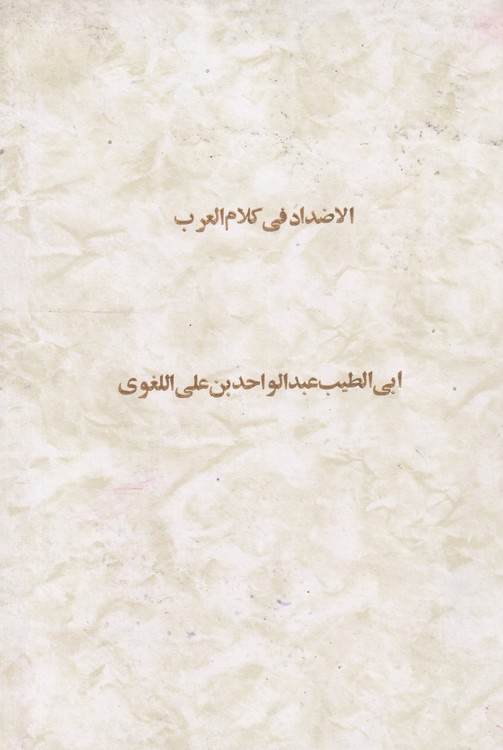 الاضداد فی کلام العرب
ابی الطیب عبدالواحد بن علی اللغوی